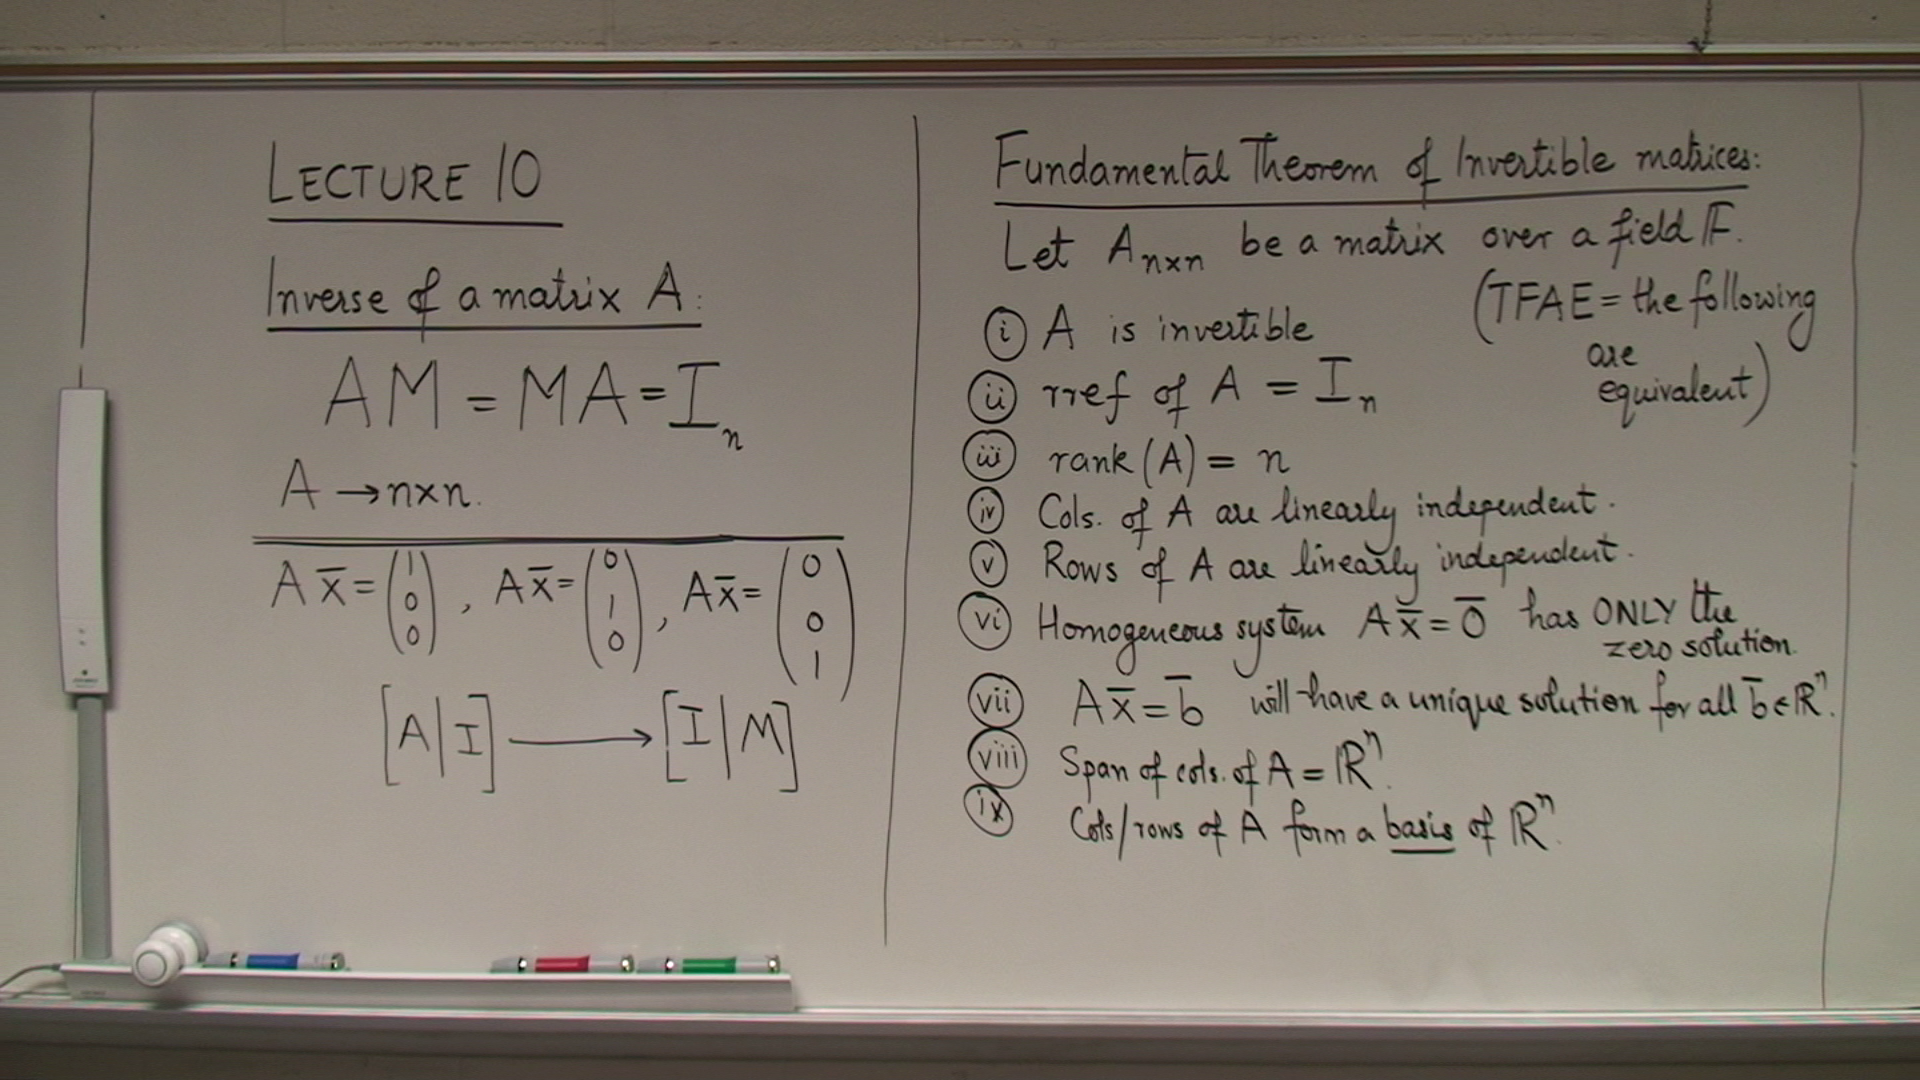 LECTURE 10
Inverse of a matrix A:
AM = MA = Iₙ
A → n×n.
A x̅ = (1 0 0), A x̅ = (0 1 0), A x̅ = (0 0 1)
[A|I] → [I|M]
Fundamental Theorem of Invertible matrices:
Let Aₙₓₙ be a matrix over a field 𝔽.
(TFAE = the following
are
equivalent)
(i) A is invertible
(ii) rref of A = Iₙ
(iii) rank(A) = n
(iv) Cols. of A are linearly independent.
(v) Rows of A are linearly independent.
(vi) Homogeneous system A x̅ = 0̅ has ONLY the
zero solution.
(vii) A x̅ = b̅ will have a unique solution for all b̅ ∈ ℝⁿ.
(viii) Span of cols. of A = ℝⁿ.
(ix) Cols/rows of A form a basis of ℝⁿ.